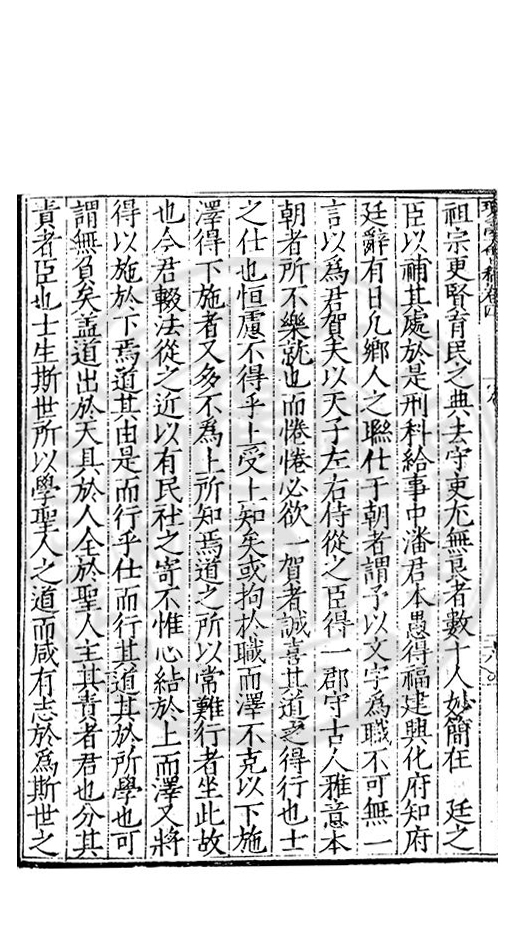 祖宗更賢育民之典去守吏尤無良者數十人妙簡在　廷之
臣以補其處於是刑科給事中潘君本愚得福建興化府知府
廷辭有日凡鄉人之聮仕于朝者謂予以文字為職不可無一
言以為君賀夫以天子左右侍從之臣得一郡守古人雅意本
朝者所不樂就也而惓惓必欲一賀者誠喜其道之得行也士
之仕也恒慮不得乎上受上知矣或拘於職而澤不克以下施
澤得下施者又多不為上所知焉道之所以常難行者坐此故
也今君輟法從之近以有民社之寄不惟心結於上而澤又將
得以施於下焉道其由是而行乎仕而行其道其於所學也可
謂無負矣盖道出於天具於人全於聖人主其責者君也分其
責者臣也士生斯世所以學聖人之道而咸有志於為斯世之